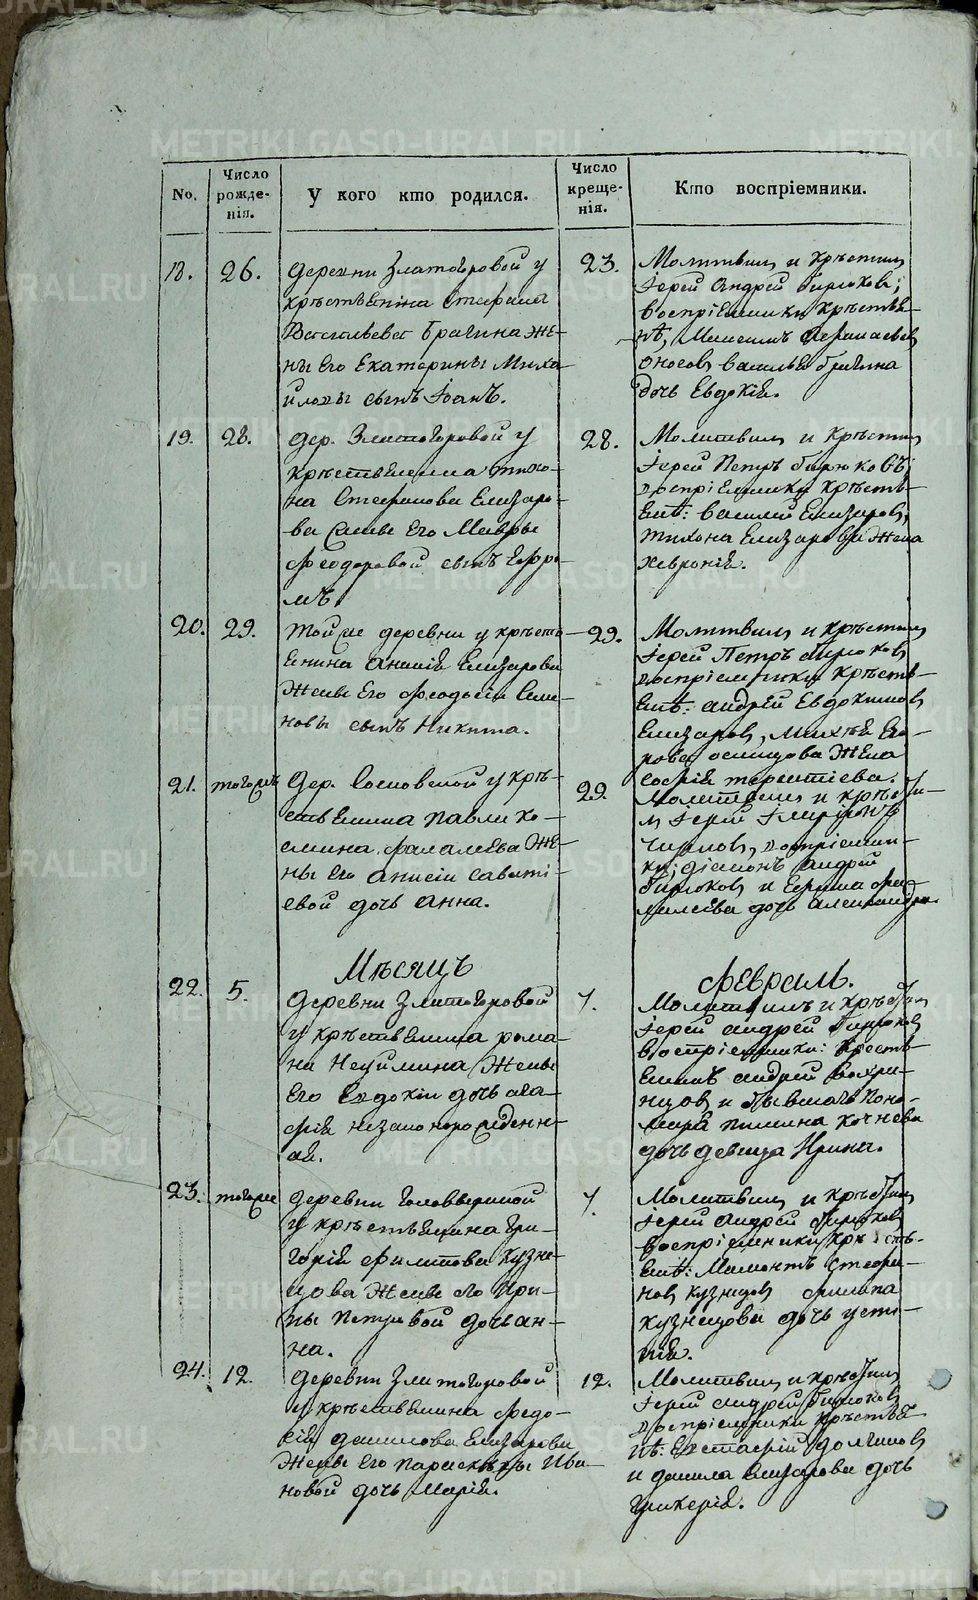 No.
Число рожде-
нія.
У кого кто родился.
Число креще-
нія.
Кто воспріемники.
18.
26.
деревни Златогоровой у
крѣстьѣнина Стефана
Васильева Брагина же-
ны Его Екатерины Миха
йловы сынъ Іоанъ.
23.
Молитвилъ и крѣстилъ
Іерей Андрей Бирюковъ;
воспріемники крѣстьѣ-
нѣ,
Оносовъ Василья Брагина
дочь Евдокія.
19.
28.
дер. Златогоровой у
крѣстьѣнина Тихо-
на Стефанова Елизаро-
ва жены Его Мавры
Феодоровой сынъ Ефре-
мъ.
28.
Молитвилъ и Крѣстилъ
Іерей Петръ Бирюковъ;
воспріемники крѣсть-
енѣ: Василей Елизаровъ,
Тихона Елизарова жена
Хевронія.
20.
29.
Той же деревни у крѣсть-
енина Ананія Елизарова
жены Его Феодосіи Семе-
новы сынъ Никита.
29.
Молитвилъ и крѣстилъ
Іерей Петръ Бирюковъ
воспріемники крѣсть-
енѣ: Андрей Евдокимовъ
Елизаровъ,
жена
Софія Терентіева.
21.
тогожъ
дер. Сосновской у крѣ-
стьѣнина Павла Ко-
смина Фалалеева Же-
ны Его Анисіи Савati-
евой дочь Анна.
29.
Молитвилъ и крѣсти-
лъ Іерей Іларіонъ
воспріемни-
ки; діаконъ Андрей
Бирюковъ и Ефима Фа-
лалеева дочь Александра.
Мѣсяцъ
Февраль.
22.
5.
Деревни Златогоровой
у крѣстьѣнина Рома-
на Неуймина Жены
Его Евдокіи дочь Ага-
фія незаконорожденн-
ая.
7.
Молитвилъ и крѣстилъ
Іерей Андрей Бирюковъ
воспріемники: Кресть-
енинъ Андрей Вохри-
нцовъ и бывшаго Поно-
маря Пимина Кочнева
дочь девица Ирина.
23.
тогоже
деревни Головыриной
у крѣстьѣнина Гри-
горія Филипова Кузне-
цова жены его Ири-
ны Петровой дочь Ан-
на.
7.
Молитвилъ и крѣстилъ
Іерей Андрей Бирюковъ
воспріемники крѣсть-
енѣ: Мамонтъ Стефа-
новъ Кузнецовъ Филипа
Кузнецова дочь Усти-
нія.
24.
12.
деревни Златогоровой
у крѣстьѣнина Федо-
сія Данилова Елизарова
жены Его Парасковьи Ива-
новой дочь Марія.
12.
Молитвилъ и крѣстилъ
Іерей Андрей Бирюковъ
воспріемники крѣстьѣ
нѣ: Евстафій Долгановъ
и Данила Елизарова дочь
Гликерія.